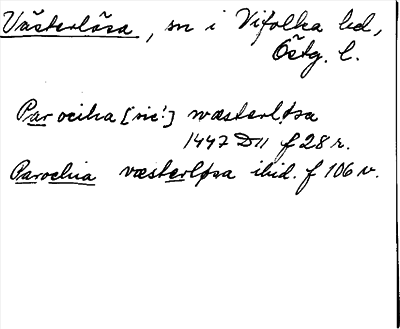 Västerlösa, sn i Vifolka hd,
Östg. l.
Parociha [sic!] wæsterløsa
1447 D11 f 28 r.
Parochia væsterløsa ibid. f 106 v.